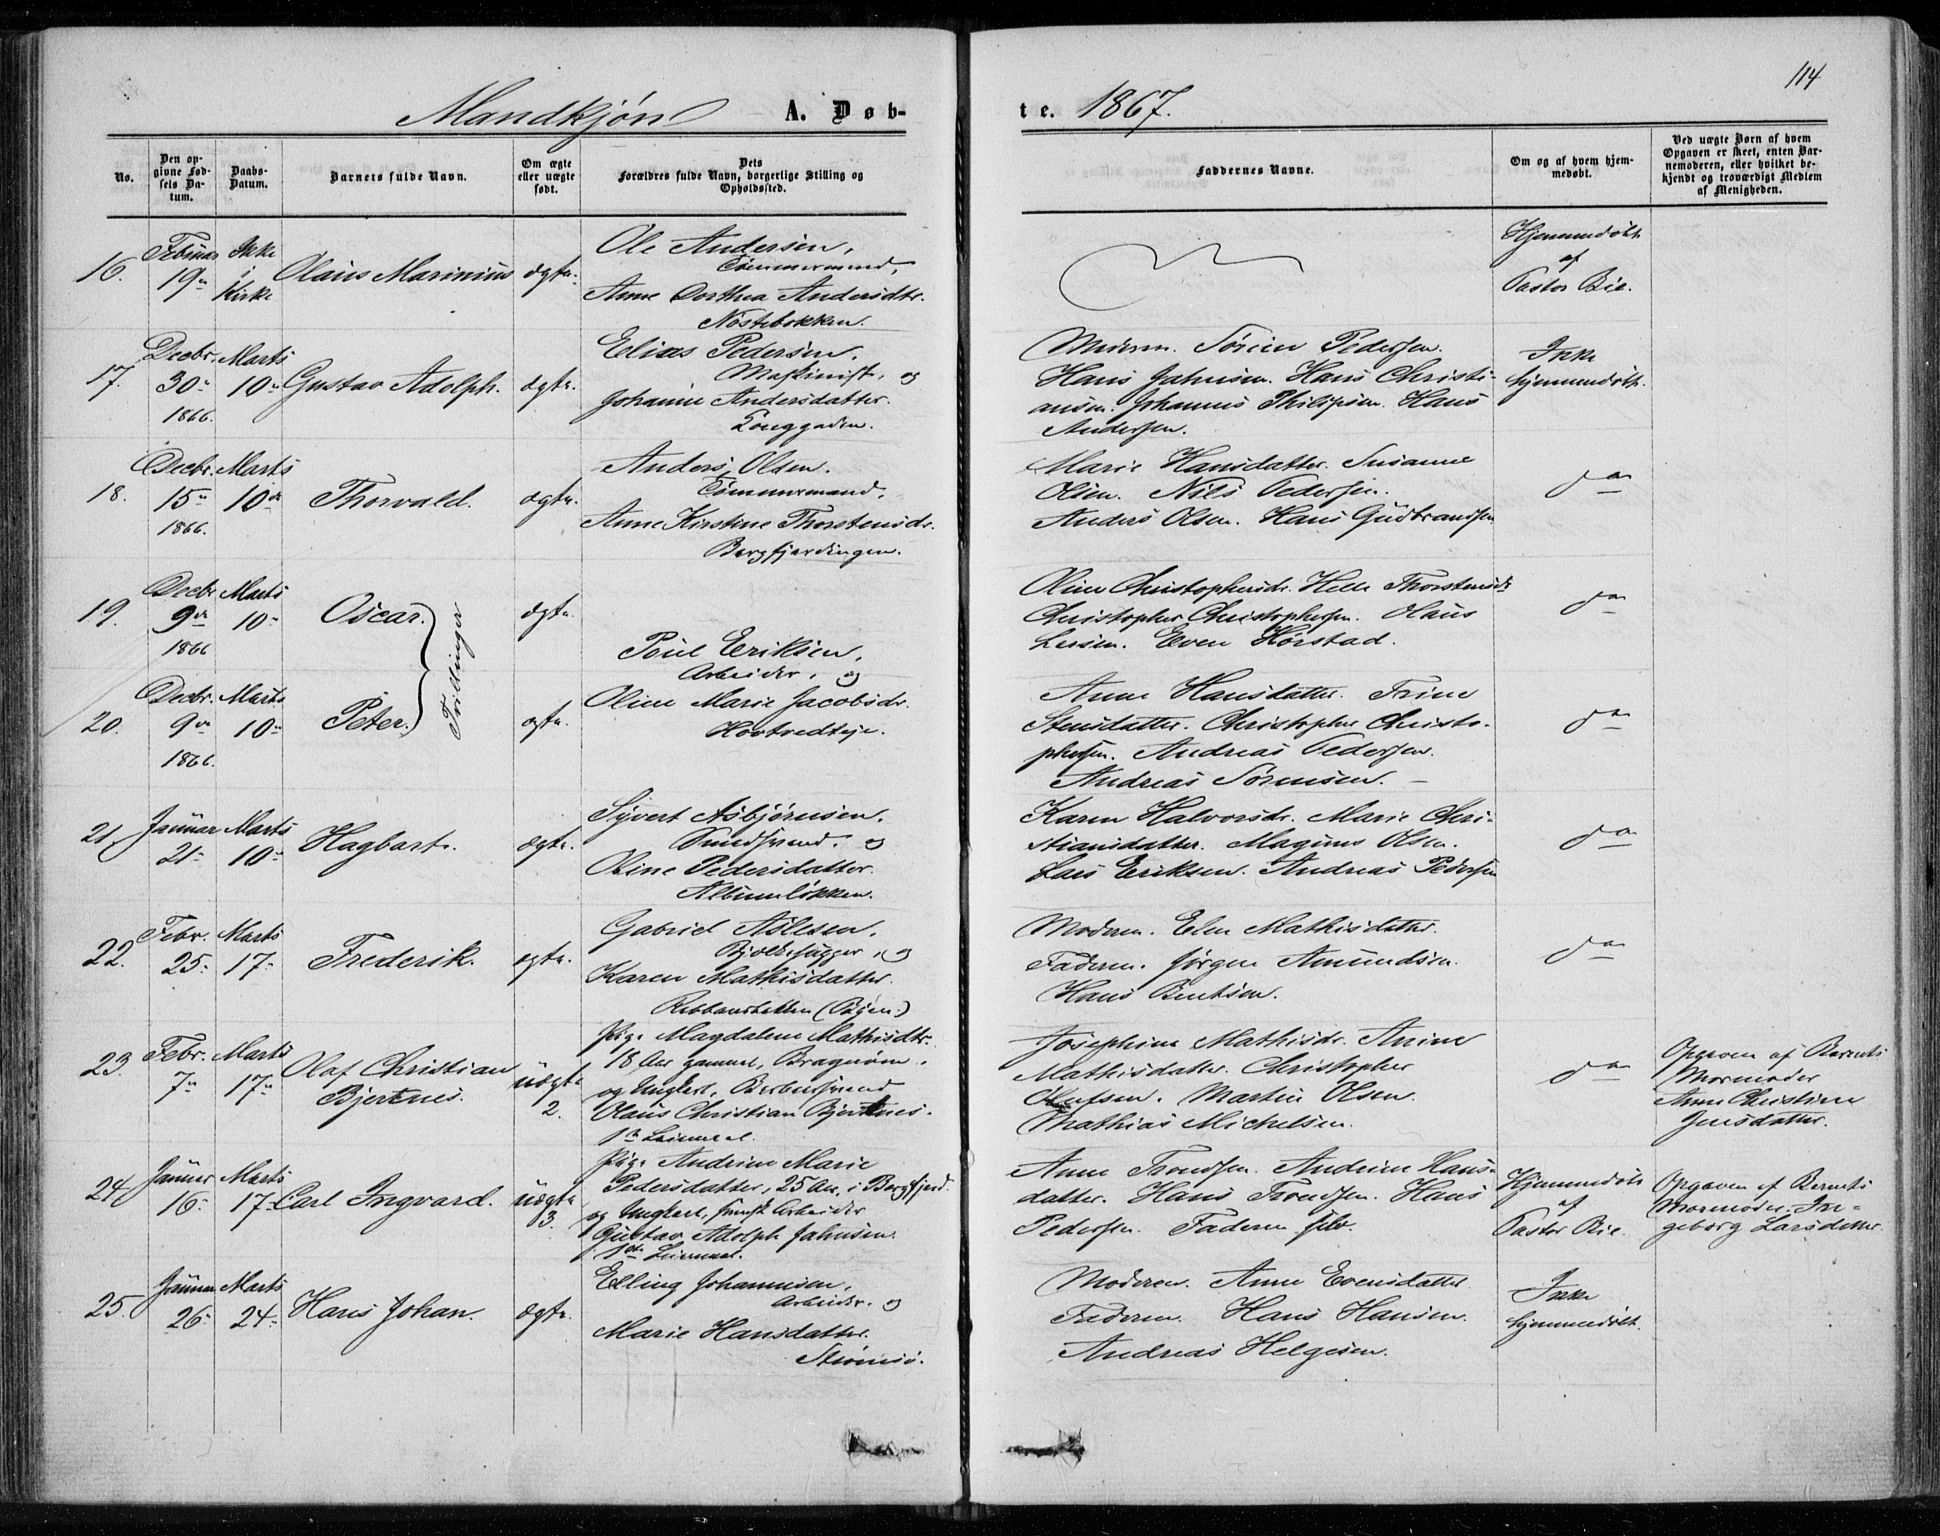 114
Mandkjøn A. Døb-
te. 1867.
No.
Den op-
givne Fød-
sels Da-
tum.
Daabs-
Datum.
Barnets fulde Navn.
Om ægte
eller uægte
født.
Dets
Forældres fulde Navn, borgerlige Stilling og
Opholdssted.
Faddernes Navne.
Om og af hvem hjem-
medøbt.
Ved uægte Børn af hvem
Opgaven er skeet, enten Bar-
nemoderen, eller hvilket be-
kjendt og troværdigt Medlem
af Menigheden.
16.
Februar
19
Ikke
i
Kirke
Olaus Marinius
ægte.
Ole Andersen,
Tømmermand,
Anne Dorthea Andersdtr.
Nøstebakken.
Hjemmedøbt
af
Pastor Bie.
17.
Decbr.
30
1866.
Marts
10
Gustav Adolph.
ægte.
Elias Pedersen,
Maskinist, og
Johanne Andersdatter.
Tonggaden.
Moderen. Sørine Pedersen.
Hans Jahnsen. Hans Christi-
ansen. Johannes Philipsen. Hans
Andersen.
Ikke
hjemmedøbt.
18.
Decbr.
15
1866.
Marts
10de
Thorvald.
ægte.
Anders Olsen.
Tømmermand,
Anne Kirstine Thorstensdr.
Bergfjerdingen.
Marie Hansdatter. Susanne
Olsen. Nils Pedersen.
Anders Olsen. Hans Gudbrandsen
do
19.
Decbr
9de
1866
Marts
10
Oscar.
Tvillinger
ægte.
Poul Eriksen,
Arbeider, og
Oline Marie Jacobsdr.
Hovtvedteje.
Oline Christophersdr. Helle Thorstensdr
Christopher Christophersen. Olaus
Larsen. Even Hørstad.
do
20.
Decbr.
9de
1866.
Marts
10
Peter.
ægte.
Anne Hansdatter. Trine
Stensdatter. Christopher Christo-
phersen. Andreas Pedersen.
Andreas Sørensen.
do
21.
Januar
21
Marts
10
Hagbart.
ægte.
Syvert Asbjørnsen,
og
Oline Pedersdatter.
Albumløkken.
Karen Halvorsdr. Marie Chri-
stiansdatter. Magnus Olsen.
Lars Eriksen. Andreas Pedersen
do
22.
Febr.
25
Marts
17
Frederik.
ægte.
Gabriel Aslesen,
Bjelkehugger, og
Karen Mathisdatter.
Moderen. Elen Mathisdatter.
Faderen. Jørgen Amundsen.
Hans Bentsen.
do
23.
Febr.
7
Marts
17
Olaf Christian
Bjertnes.
uægte
2.
Pige Magdalene Mathisdtr.
18 Aar gammel, Bragnæs.
og Ungkarl,
Olaus Christian Bjertnes.
1ste Leiermaal.
Josephine Mathisdr. Anine
Mathisdatter. Christopher
Olufsen. Martin Olsen.
Mathias Michelsen.
do
Opgaven af Barnets
Mormoder
Anne Christine
Jensdatter.
24
Januar
16
Marts
17
Carl Ingvard.
uægte
3.
Pige Andrine Marie
Pedersdatter, 25 Aar, i Bergfjerd.
og Ungkarl, svensk Arbeider
Gustav Adolph Jahnsen.
1ste Leiermaal.
Anne Trondsen. Andrine Hans-
datter. Hans Trondsen. Hans
Pedersen. Faderen selv.
Hjemmedøbt
af
Pastor Bie.
Opgaven af Barnets
Mormoder In-
geborg Larsdatter.
25.
Januar
26
Marts
24
Hans Johan.
ægte.
Elling Johannesen,
Arbeider, og
Marie Hansdatter.
Strømsø.
Moderen. Anne Evensdatter
Faderen. Hans Hansen.
Andreas Helgesen.
Ikke
hjemmedøbt.